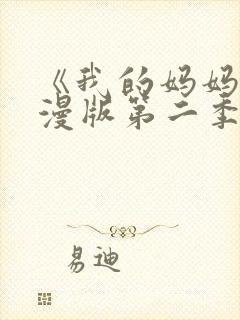 《我的妈妈
漫版第二季
易迪